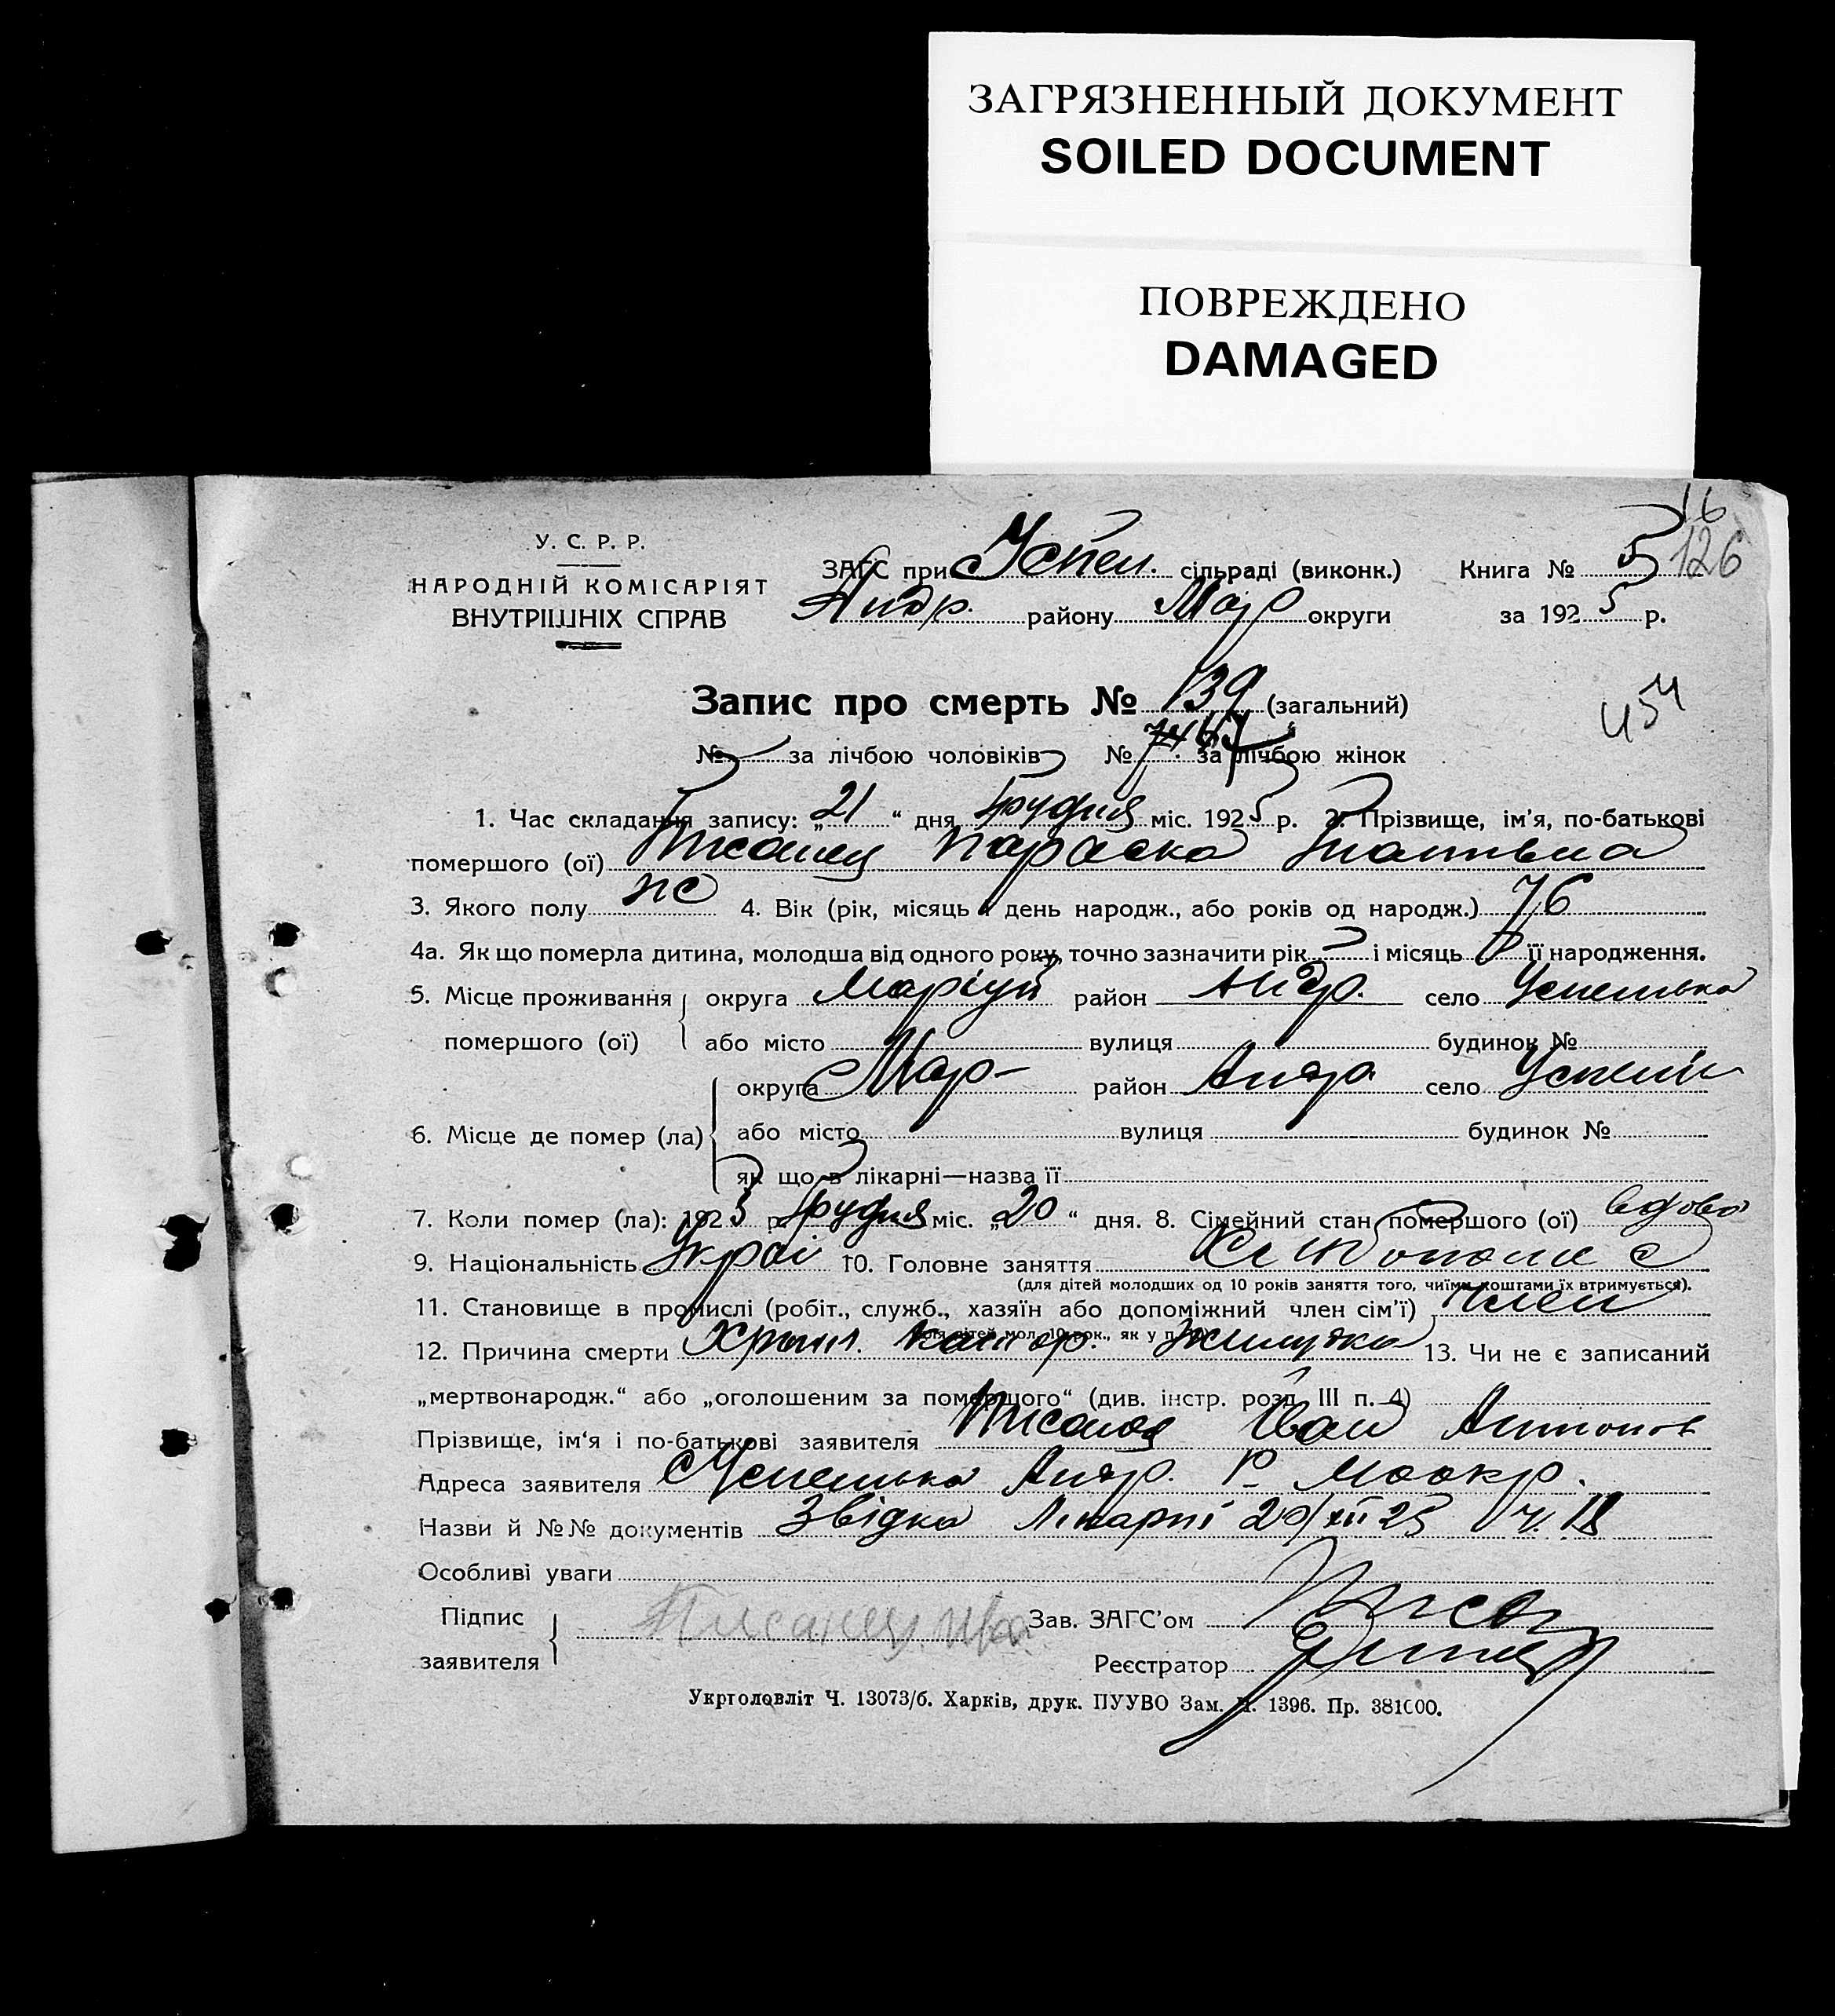 ЗАГРЯЗНЕННЫЙ ДОКУМЕНТ
SOILED DOCUMENT
ПОВРЕЖДЕНО
DAMAGED
16
126
У. С. Р. Р.
НАРОДНІЙ КОМІСАРІЯТ
ВНУТРІШНІХ СПРАВ
ЗАГС при Успен. сільраді (виконк.) Книга № 5
Андр. району Мар округи за 1925 р.
Запис про смерть № 139 (загальний)
454
№ за лічбою чоловіків № 67 за лічбою жінок
1. Час складання запису: „21“ дня Грудня міс. 1925 р. 2. Прізвище, ім'я, по-батькові
помершого (ої) Писанец Параска Гнатівна
3. Якого полу жс 4. Вік (рік, місяць і день народж., або років од народж.) 76
4а. Як що померла дитина, молодша від одного року, точно зазначити рік і місяць її народження.
5. Місце проживання помершого (ої) округа Маріуп район Андр. село Успенівка
або місто вулиця будинок №
6. Місце де помер (ла) округа Мар- район Андр. село Успенів
або місто вулиця будинок №
як що в лікарні—назва її
7. Коли помер (ла): 1925 р. Грудня міс. „20“ дня. 8. Сімейний стан помершого (ої) вдова
9. Національність Украі 10. Головне заняття
(для дітей молодших од 10 років заняття того, чиїми коштами їх втримується).
11. Становище в промислі (робіт., служб., хазяїн або допоміжний член сім'ї) член
12. Причина смерти Хрон. катар. Жилутка 13. Чи не є записаний
„мертвонародж.“ або „оголошеним за помершого“ (див. інстр. розд. III п. 4)
Прізвище, ім'я і по-батькові заявителя Писанец Иван Антонов
Адреса заявителя с Успенівка Андр. Р- Маокр.
Назви й №№ документів Звідка Лікарні 20/XII 25 Ч. 18
Особливі уваги
Підпис заявителя Писанец Ива Зав. ЗАГС'ом
Реєстратор
Укрголовліт Ч. 13073/б. Харків, друк. ПУУВО Зам. Ч. 1396. Пр. 381000.